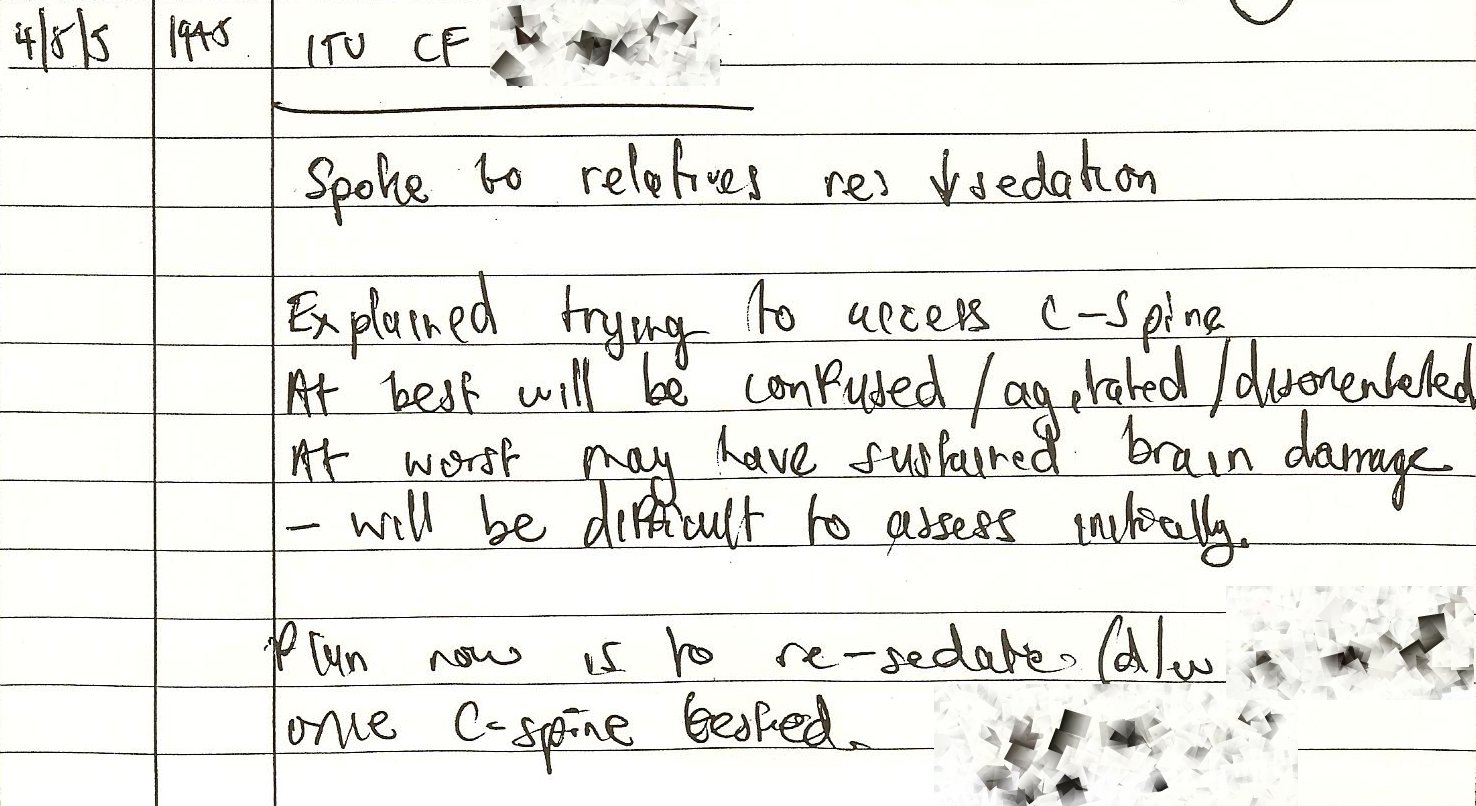 4/8/5 1945 ITU CF
Spoke to relatives re: ↓sedation
Explained trying to access C-Spine
At best will be confused/agitated/disorientated
At worst may have sustained brain damage
- will be difficult to assess initially.
Plan now is to re-sedate (d/w
once C-spine tested.